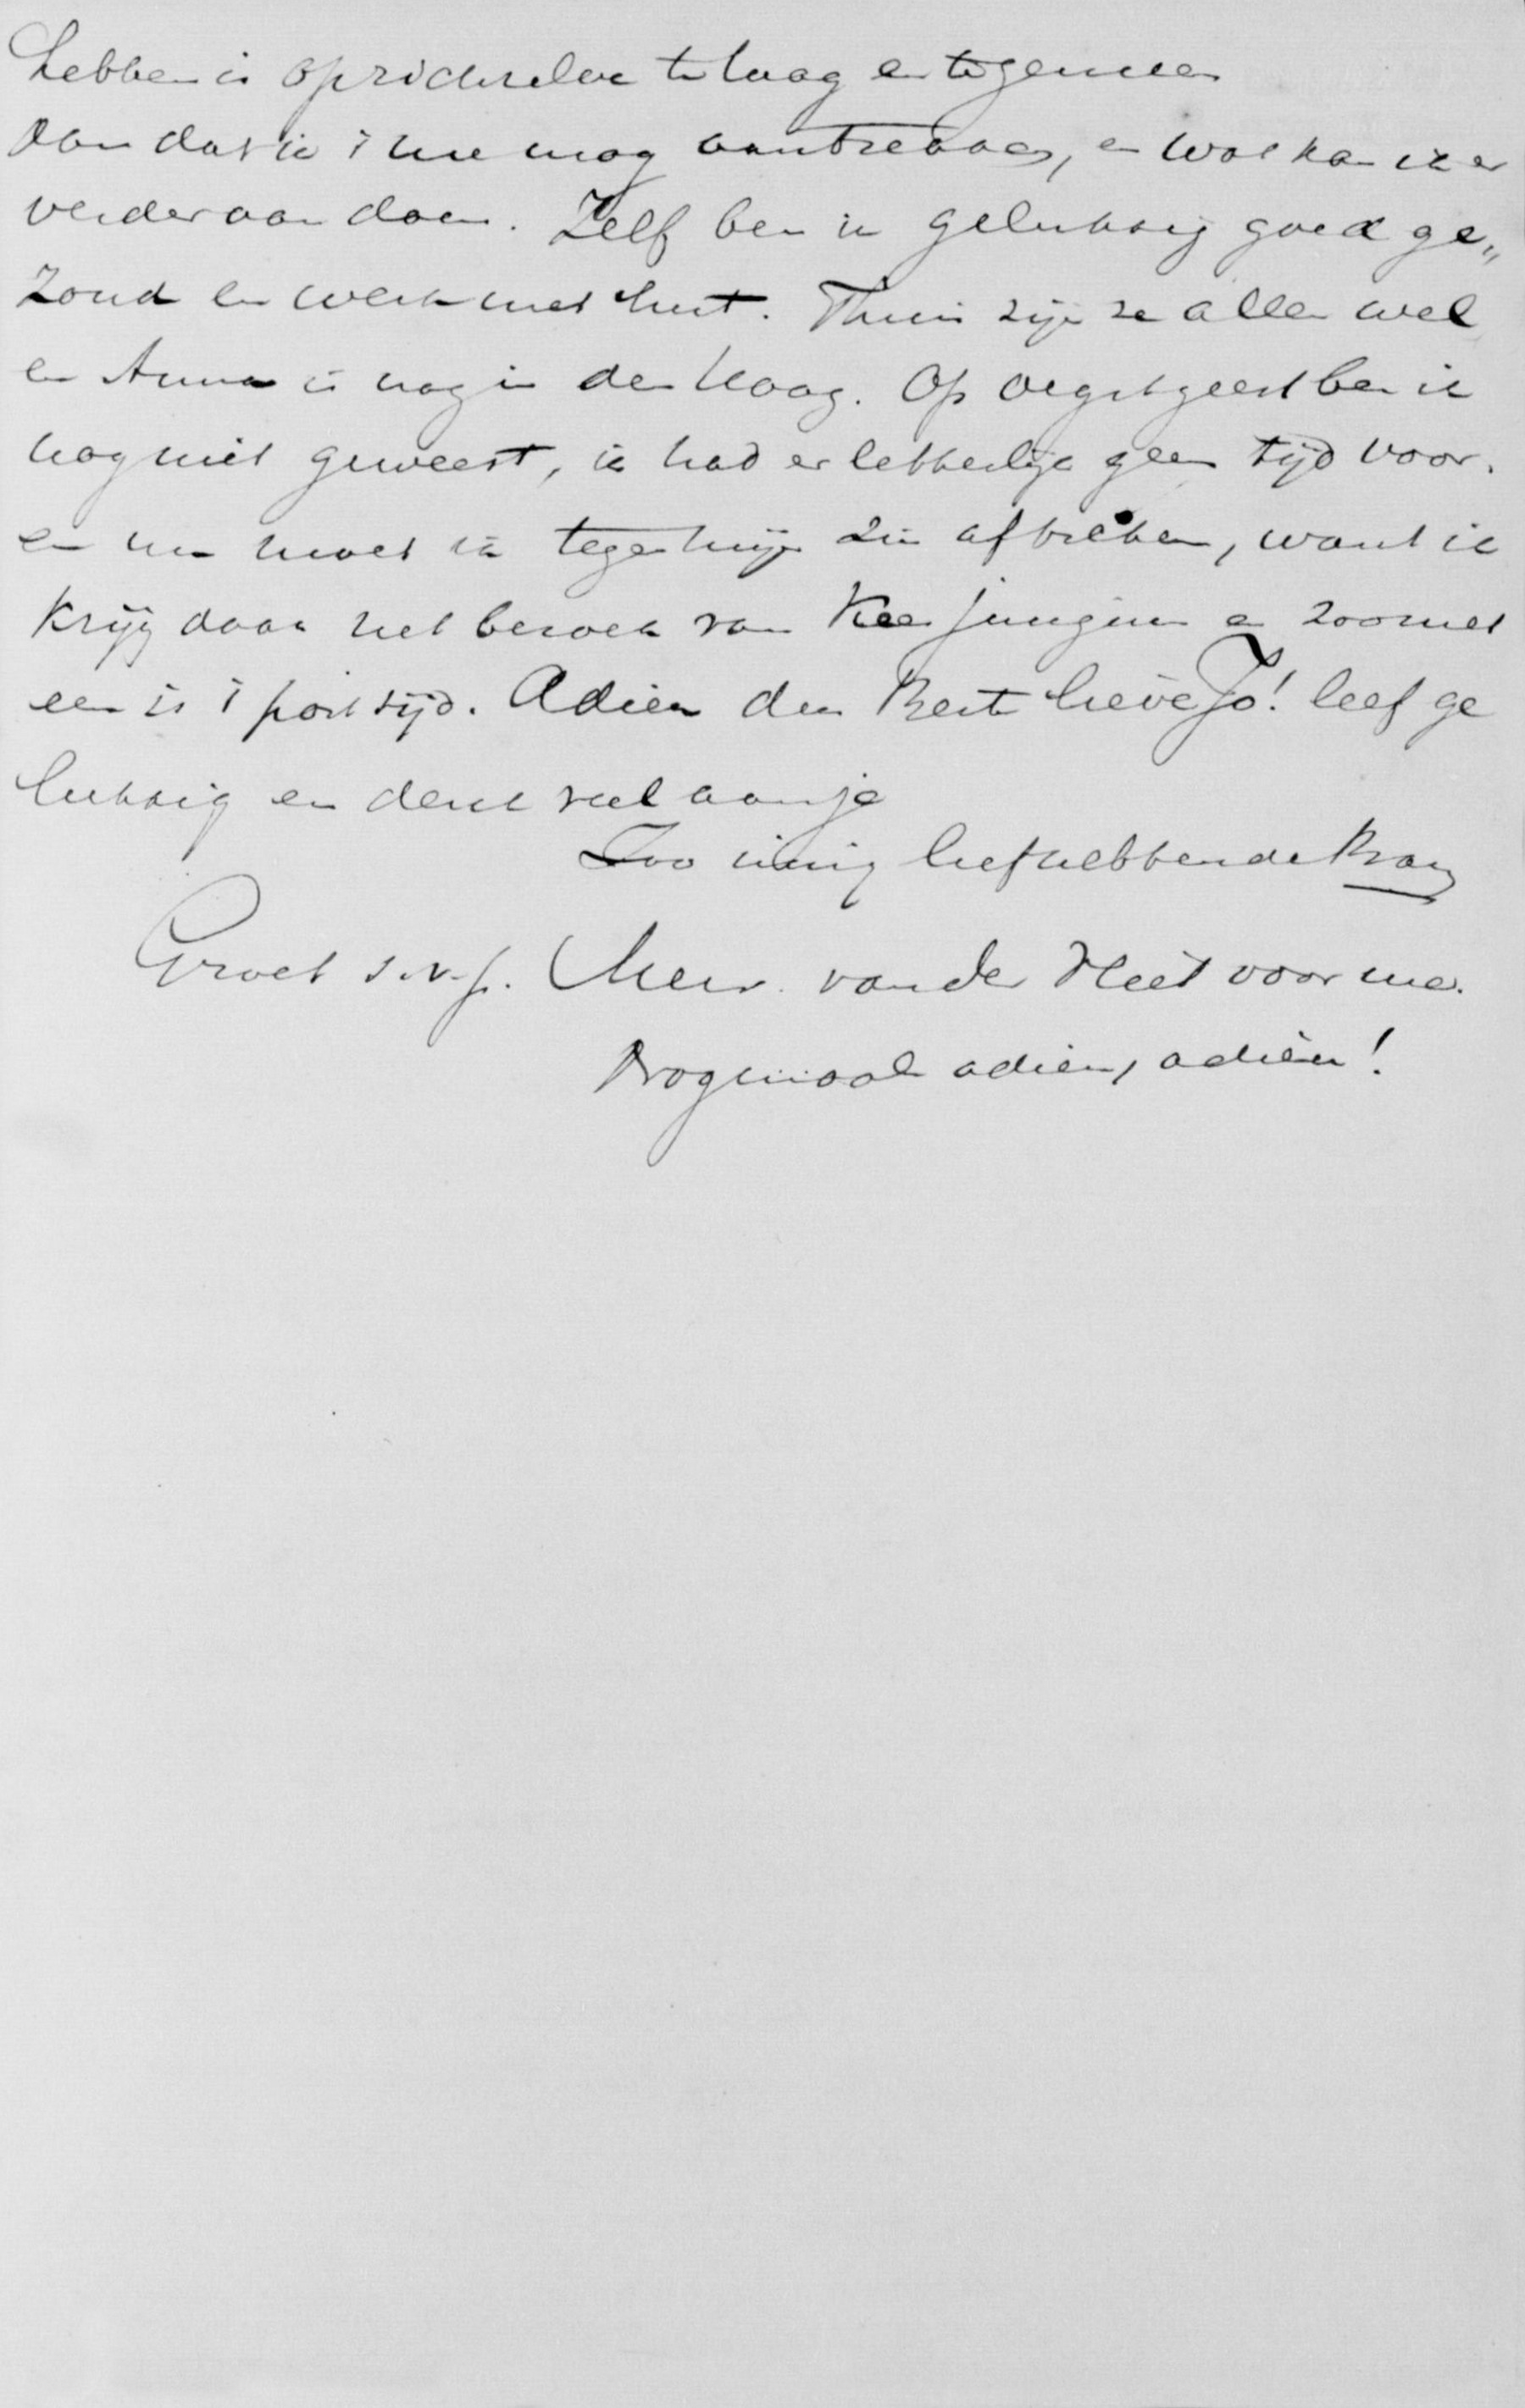 hebben is op zichzelve te laag en te gemeen
dan dat ik 't me mag aantrekken, en wat kan ik er
verder aan doen. Zelf ben ik gelukkig goed ge„
zond en werk met lust. Thuis zijn ze allen wel
en Anna is nog in den Haag. Op Oegstgeest ben ik
nog niet geweest, ik had er letterlijk geen tijd voor.
en nu moet ik tegen mijn zin afbreken, want ik
krijg daar het bezoek van Kee Jungius en zoo met
een is 't posttijd. Adieu dan Beste lieve Jo! leef ge
lukkig en denk veel aan je
Zoo innig liefhebbende Bram
Groet s.v.p. Mevr. van der Vliet voor me.
Nogmaals adieu, adieu!